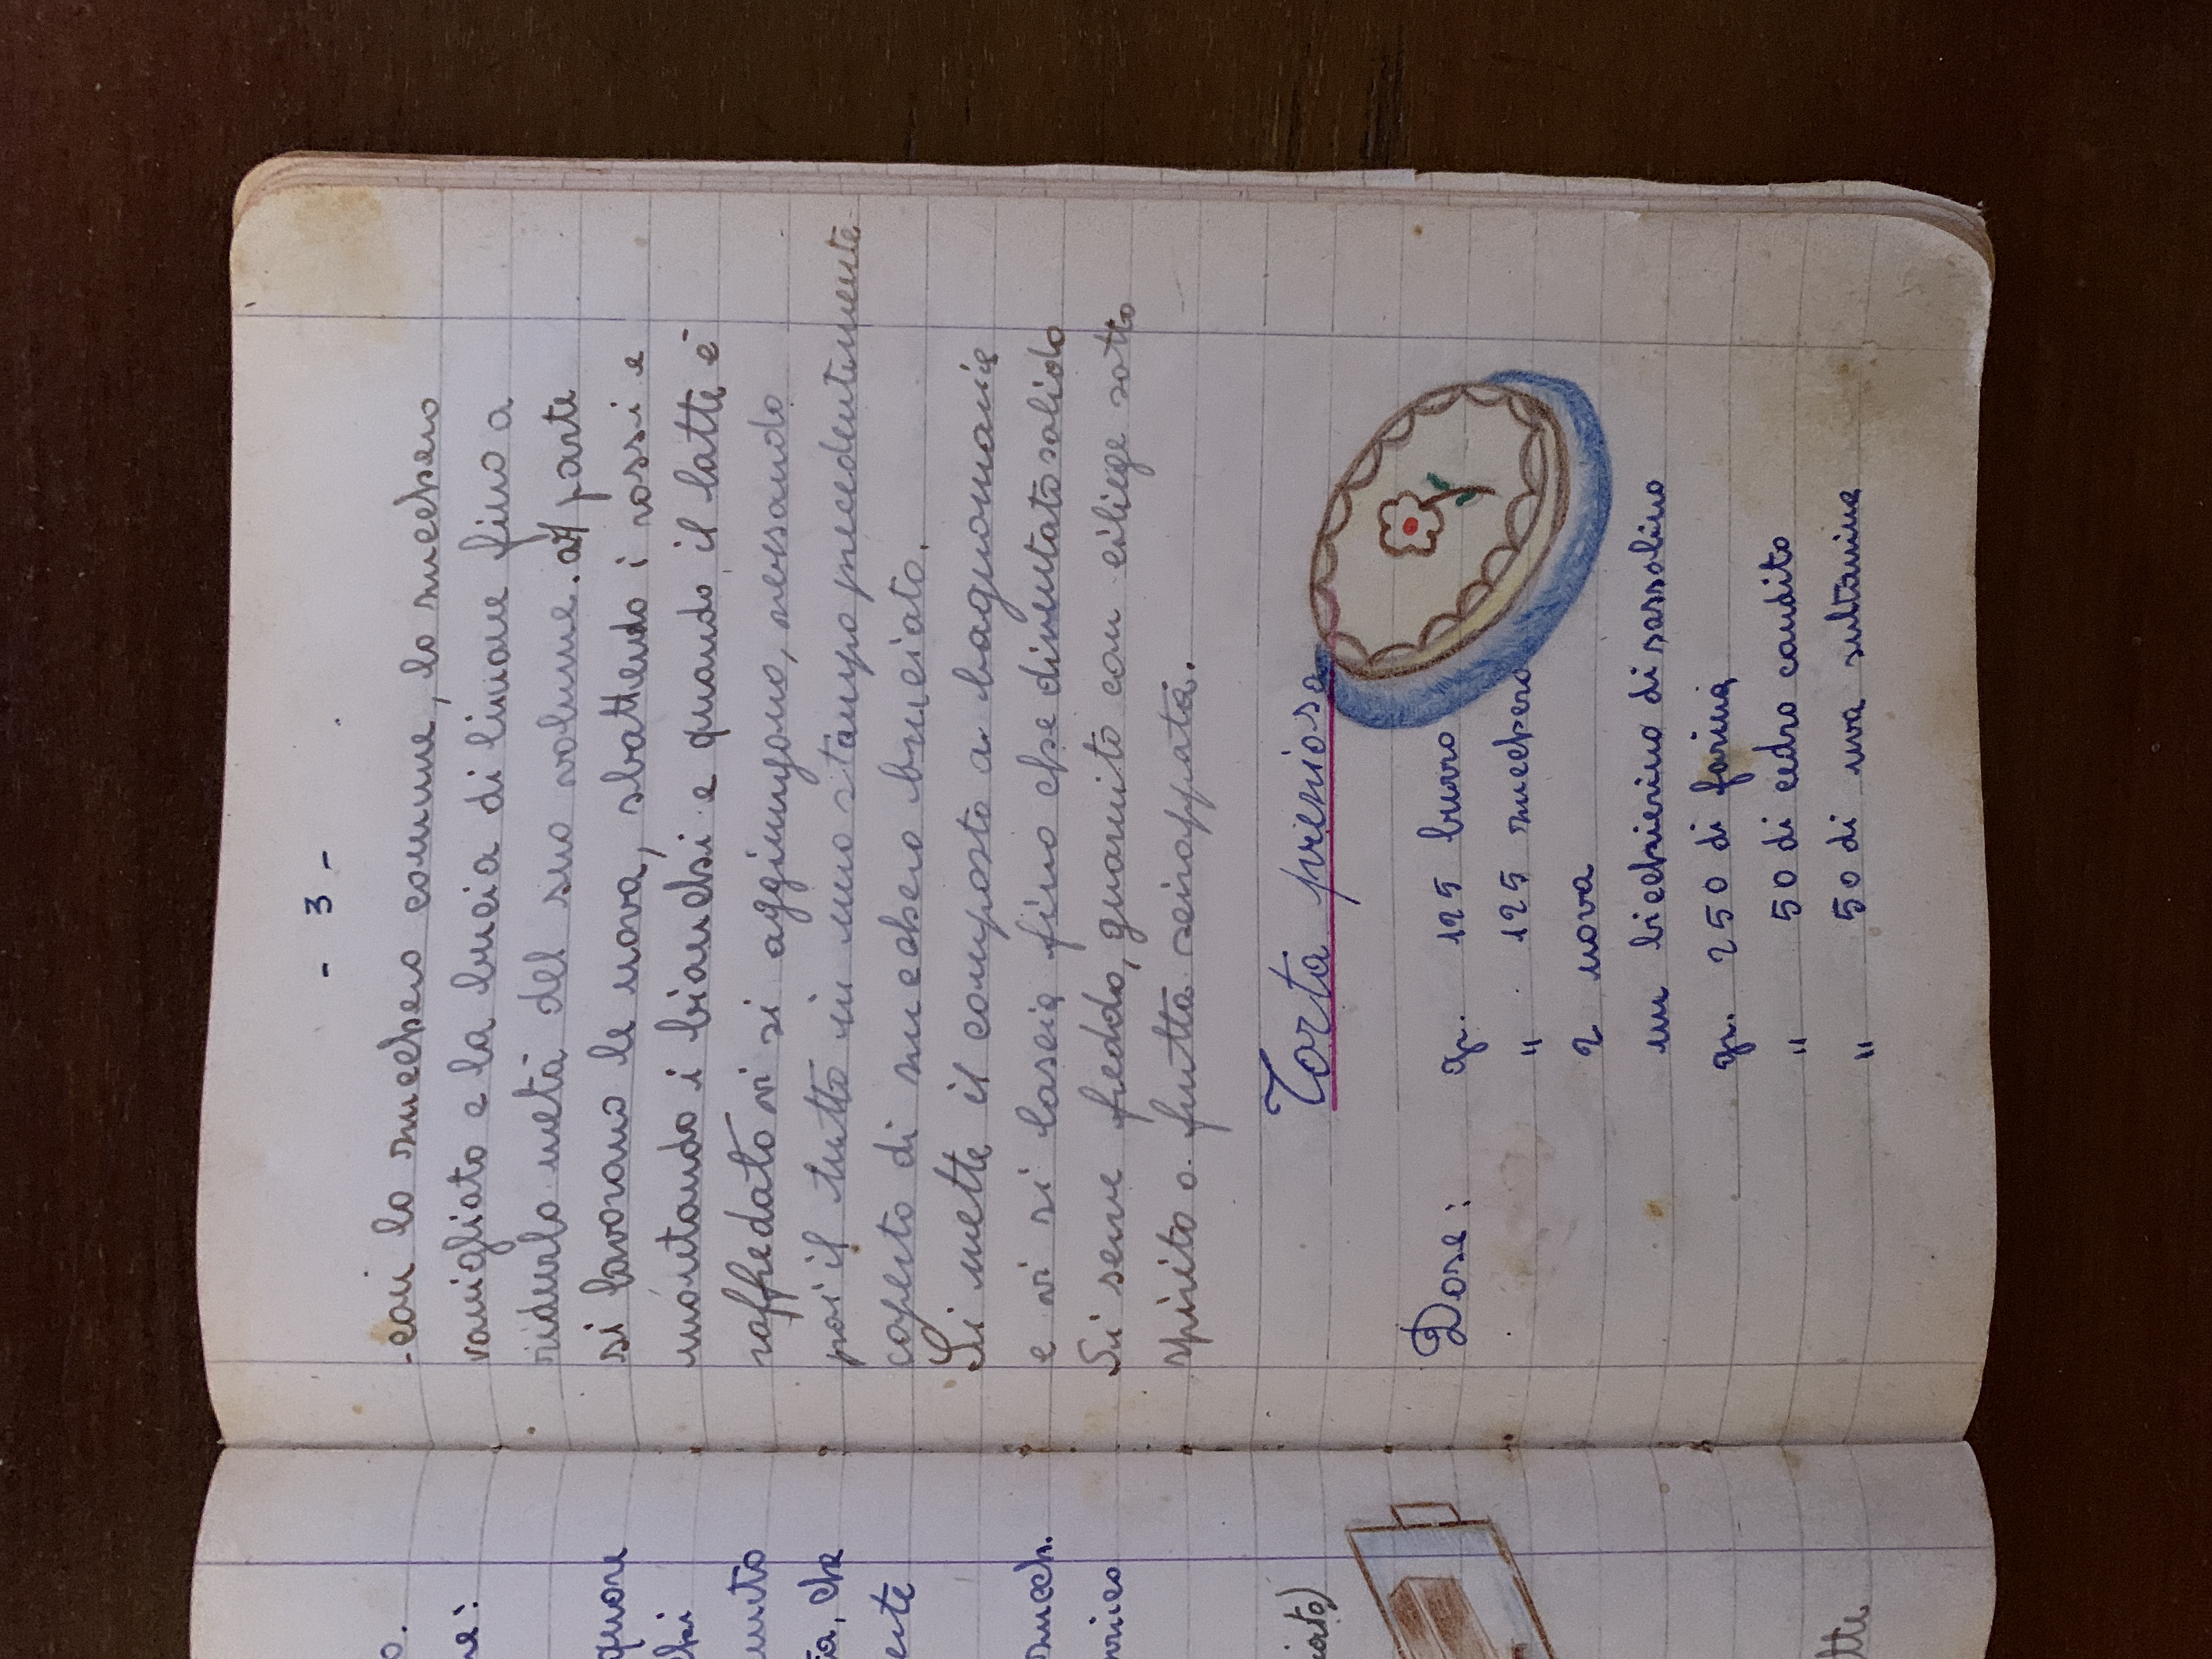 - 3 -
o.
-con lo zucchero comune, lo zucchero
re:
vanigliato e la bucia di limone fino a
ridurlo metà del suo volume. a parte
quore
si lavorano le uova, sbattendo i rossi e
chi
montando i bianchi e quando il latte è
raffredato vi si aggiungono, versando
ta, che
poi il tutto in uno stampo precedentemente
erte
coperto di zucchero bruciato.
Si mette il composto a bagnomaria
zucch.
e vi si lascia fino che diventato solido
Si serve freddo, guarnito con ciliege sotto
spirito o frutta sciroppata.
iato)
Torta preziosa
Dose: gr. 125 burro
" 125 zucchero
2 uova
un bicchierino di sassolino
gr. 250 di farina
" 50 di cedro candito
tte
" 50 di uva sultanina